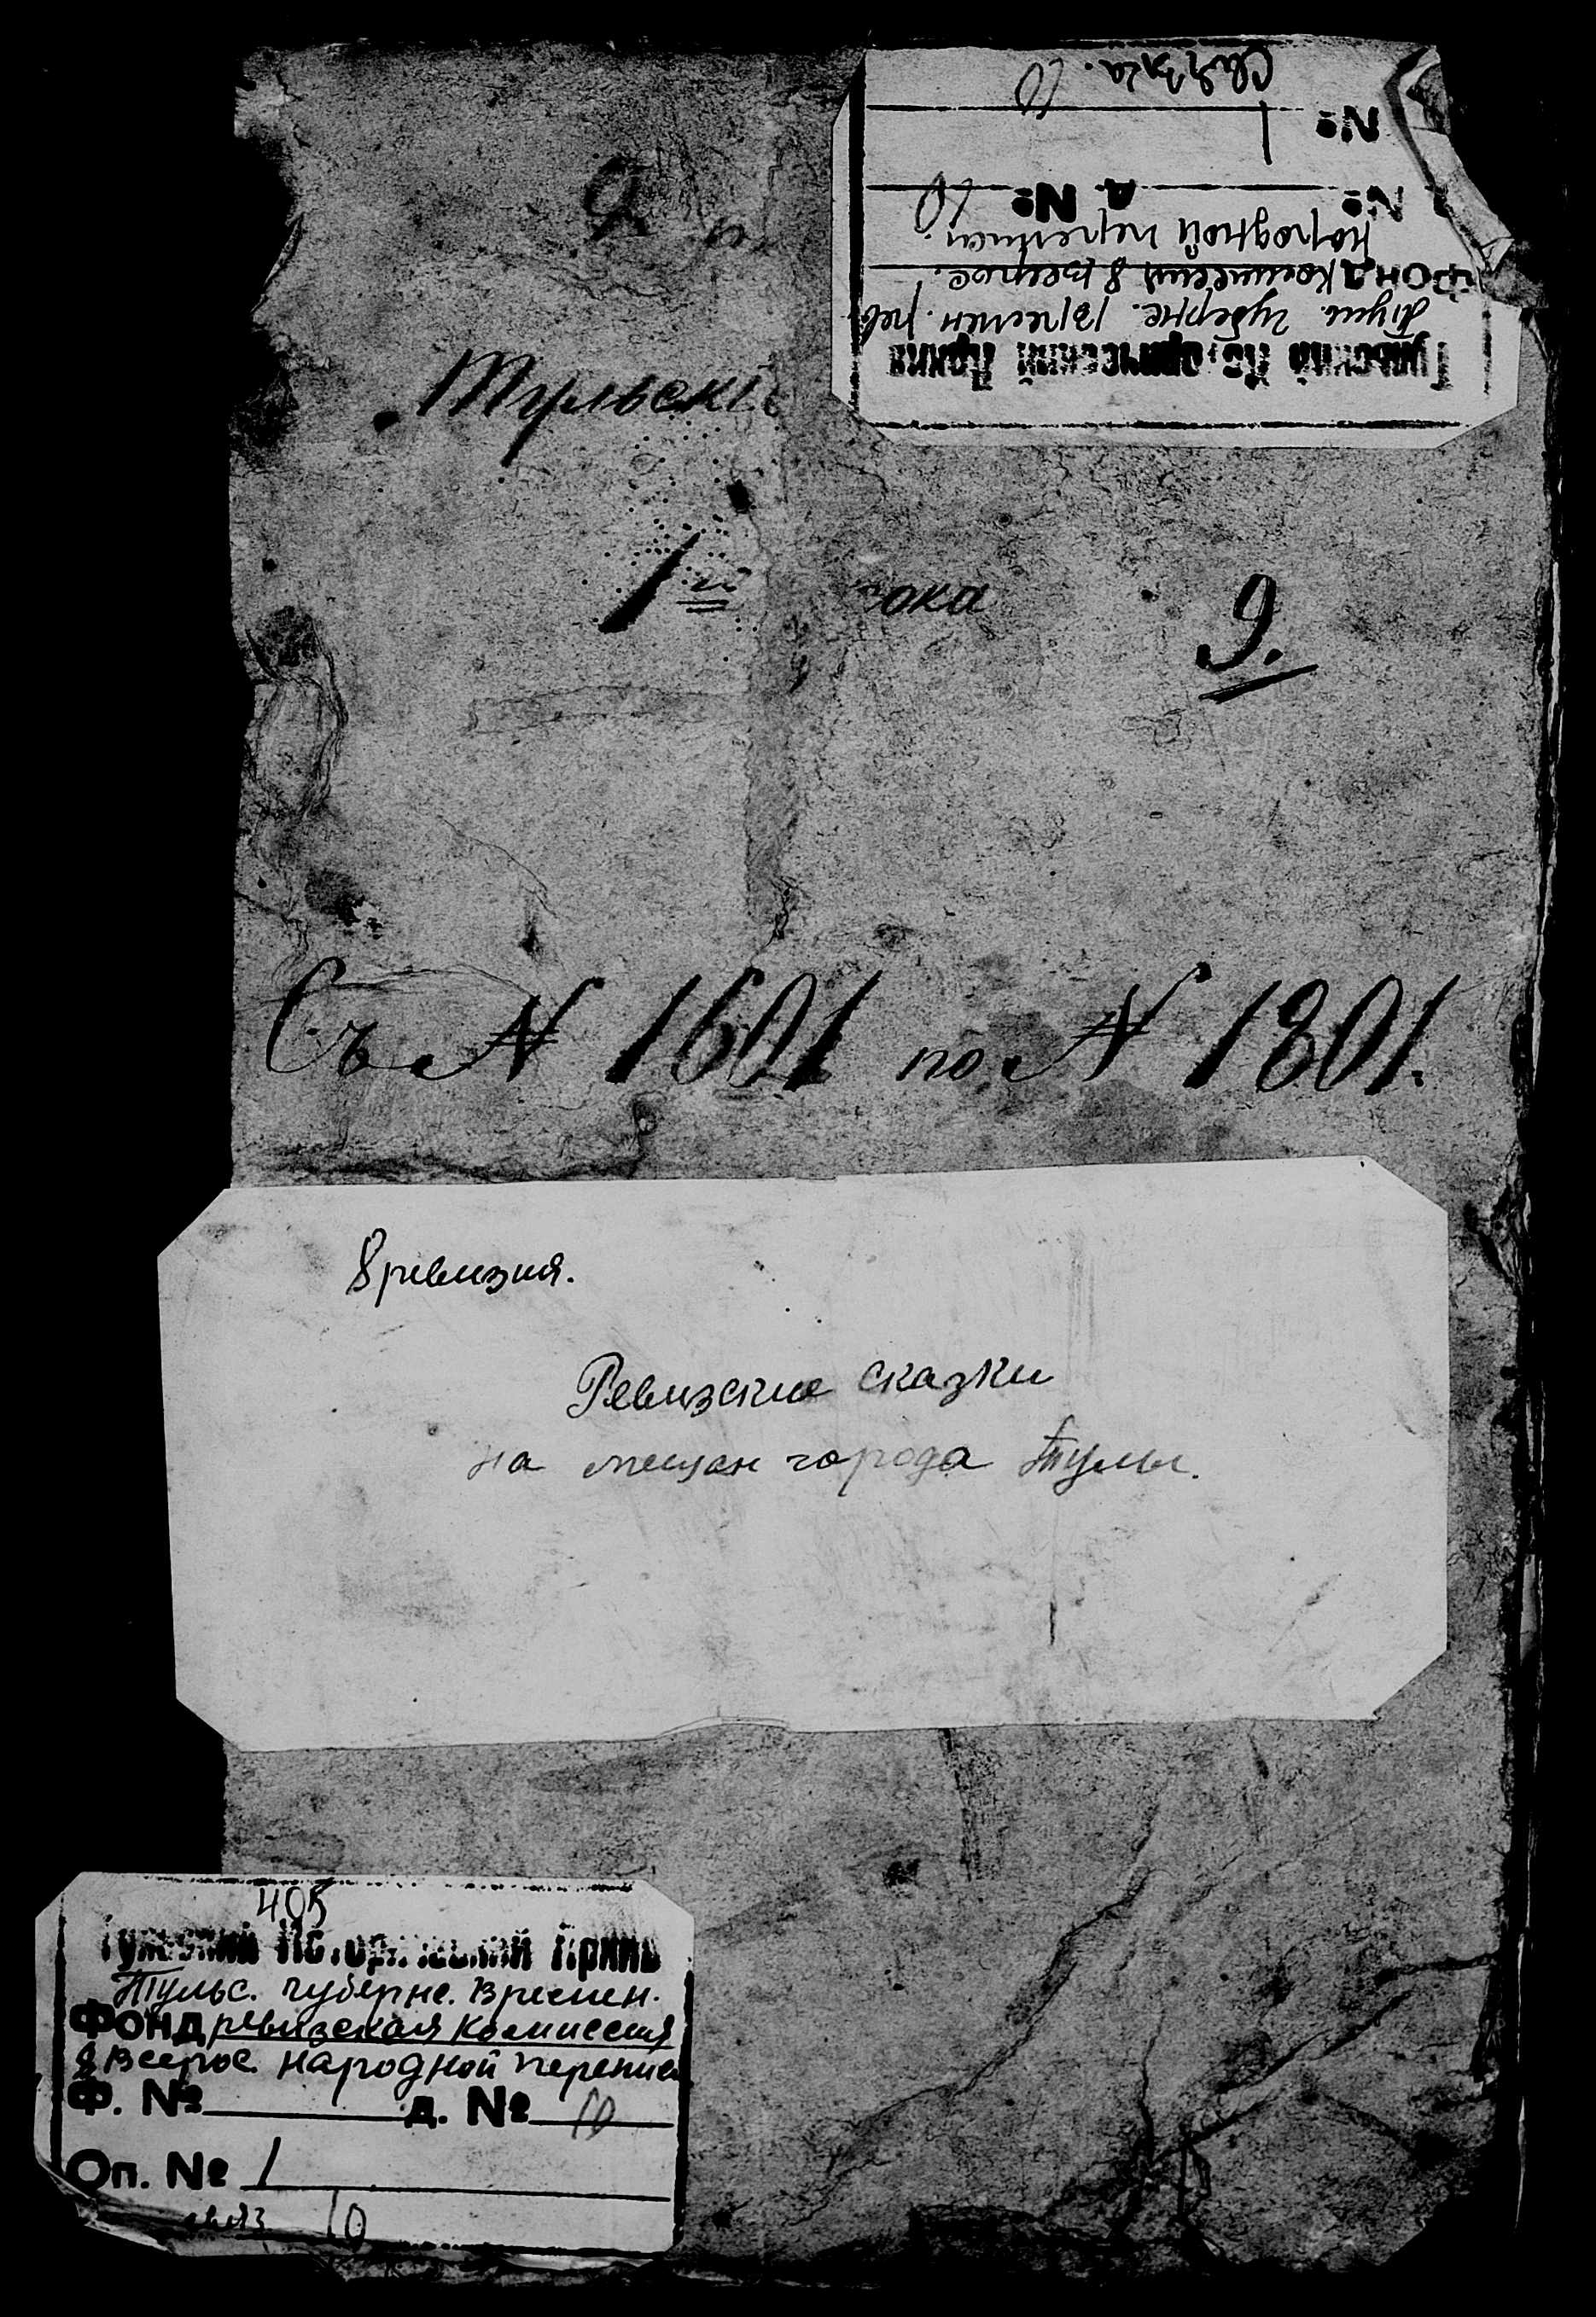 Связка. 10
№ 1
№ д. № 10
народной переписи.
Фонд комиссия 8 всерос.
Тульс. губерне. времен. рев.
Тульский Исторический Архив
Тульскі
1й
ока
9.
Съ № 1601 по № 1801.
8 ревизия.
Ревизские сказки
на мещан города Тулы.
405
Тульский Исторический Архив
Тульс. губерне. времен.
Фонд ревизская комиссия
8 всерос. народной перепис
Ф. № д. № 10
Оп. № 1
связ 10